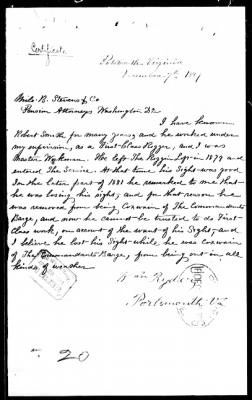 Certificate
Portsmouth Virginia
Milo B. Stevens & Co
Pension Attorneys Washington DC
I have known
Robert Smith for many years, and he worked under
my supervision, as a First Class Rigger, and I was
Master Workman. He left The Rigging Loft in 1879 and
entered The Service. At that time his Sight was good
In the later part of 1881 he remarked to me that
he was losing his sight, and for that reason he
was removed from being Coxswain of The Commandants
Barge, and now he cannot be trusted to do First
Class work, on account of the want of his Sight, and
I believe he lost his Sight while he was Coxswain
of The Commandants Barge, from being out in all
kinds of weather
Portsmouth Va
20